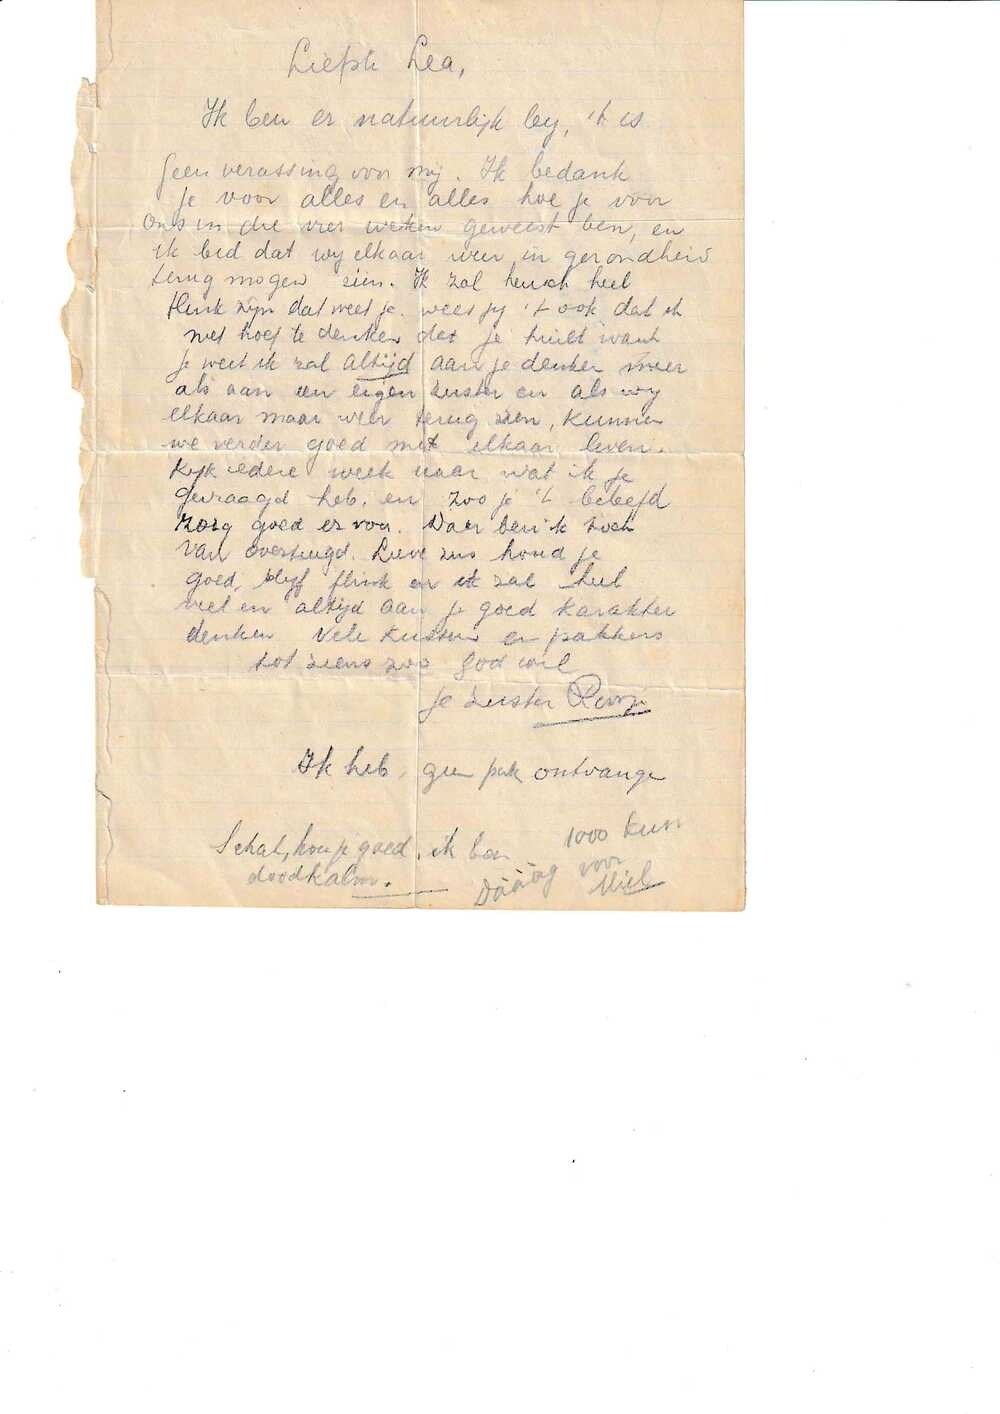 Liefste Lea,
Ik ben er natuurlijk bij, 't is
geen verassing voor mij. Ik bedank
je voor alles en alles hoe je voor
ons in die vier weken geweest ben, en
ik bid dat wij elkaar weer in gezondheid
terug mogen zien. Ik zal heusch heel
flink zijn dat weet je. wees jij 't ook dat ik
niet hoef te denken dat je huilt want
je weet ik zal altijd aan je denken meer
als aan een eigen zuster en als wij
elkaar maar weer terug zien, kunnen
we verder goed met elkaar leven.
Kijk iedere week naar wat ik je
gevraagd heb, en zoo je 't beleefd
zorg goed er voor. Daar ben ik toch
van overtuigd. Lieve zus houd je
goed, blijf flink en ik zal heel
veel en altijd aan je goed karakter
denken Vele kussen en pakkers
tot ziens zoo god wil
je zuster
Ik heb, geen pak ontvange
Schat, hou je goed, ik ben
doodkalm.
Dáááág
1000 kussen
voor
Miel